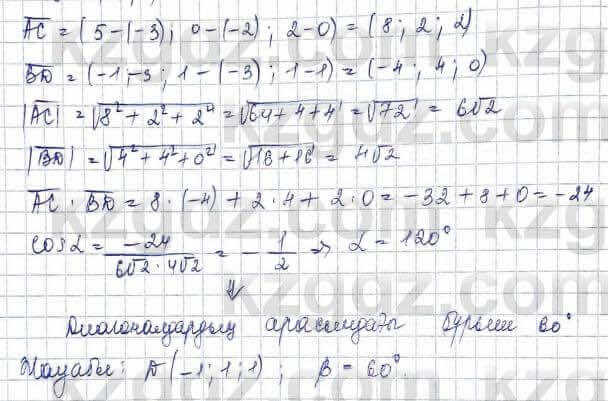 AC = (5-(-3); 0-(-2); 2-0) = (8; 2; 2)
BD = (-1-3; 1-(-3); 1-1) = (-4; 4; 0)
|AC| = √8²+2²+2² = √64+4+4 = √72 = 6√2
|BD| = √4²+4²+0² = √16+16 = 4√2
AC · BD = 8·(-4) + 2·4 + 2·0 = -32+8+0 = -24
cos α = -24 / 6√2·4√2 = -1/2 ⇒ α = 120°
⇓
Диагональдардың арасындағы бұрыш 60°
Жауабы: D(-1; 1; 1); β = 60°.
kzgdz.com